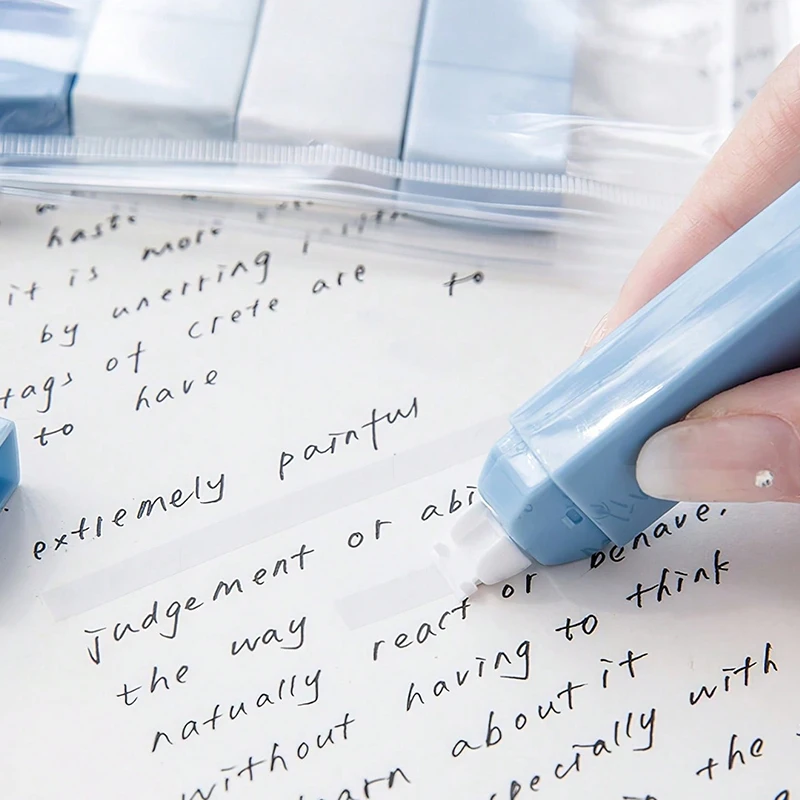 it is more
by unerring
tags of crete are to
to have
extremely painful
judgement or abi
the way react or behave.
natually having to think
without about it
especially with
the